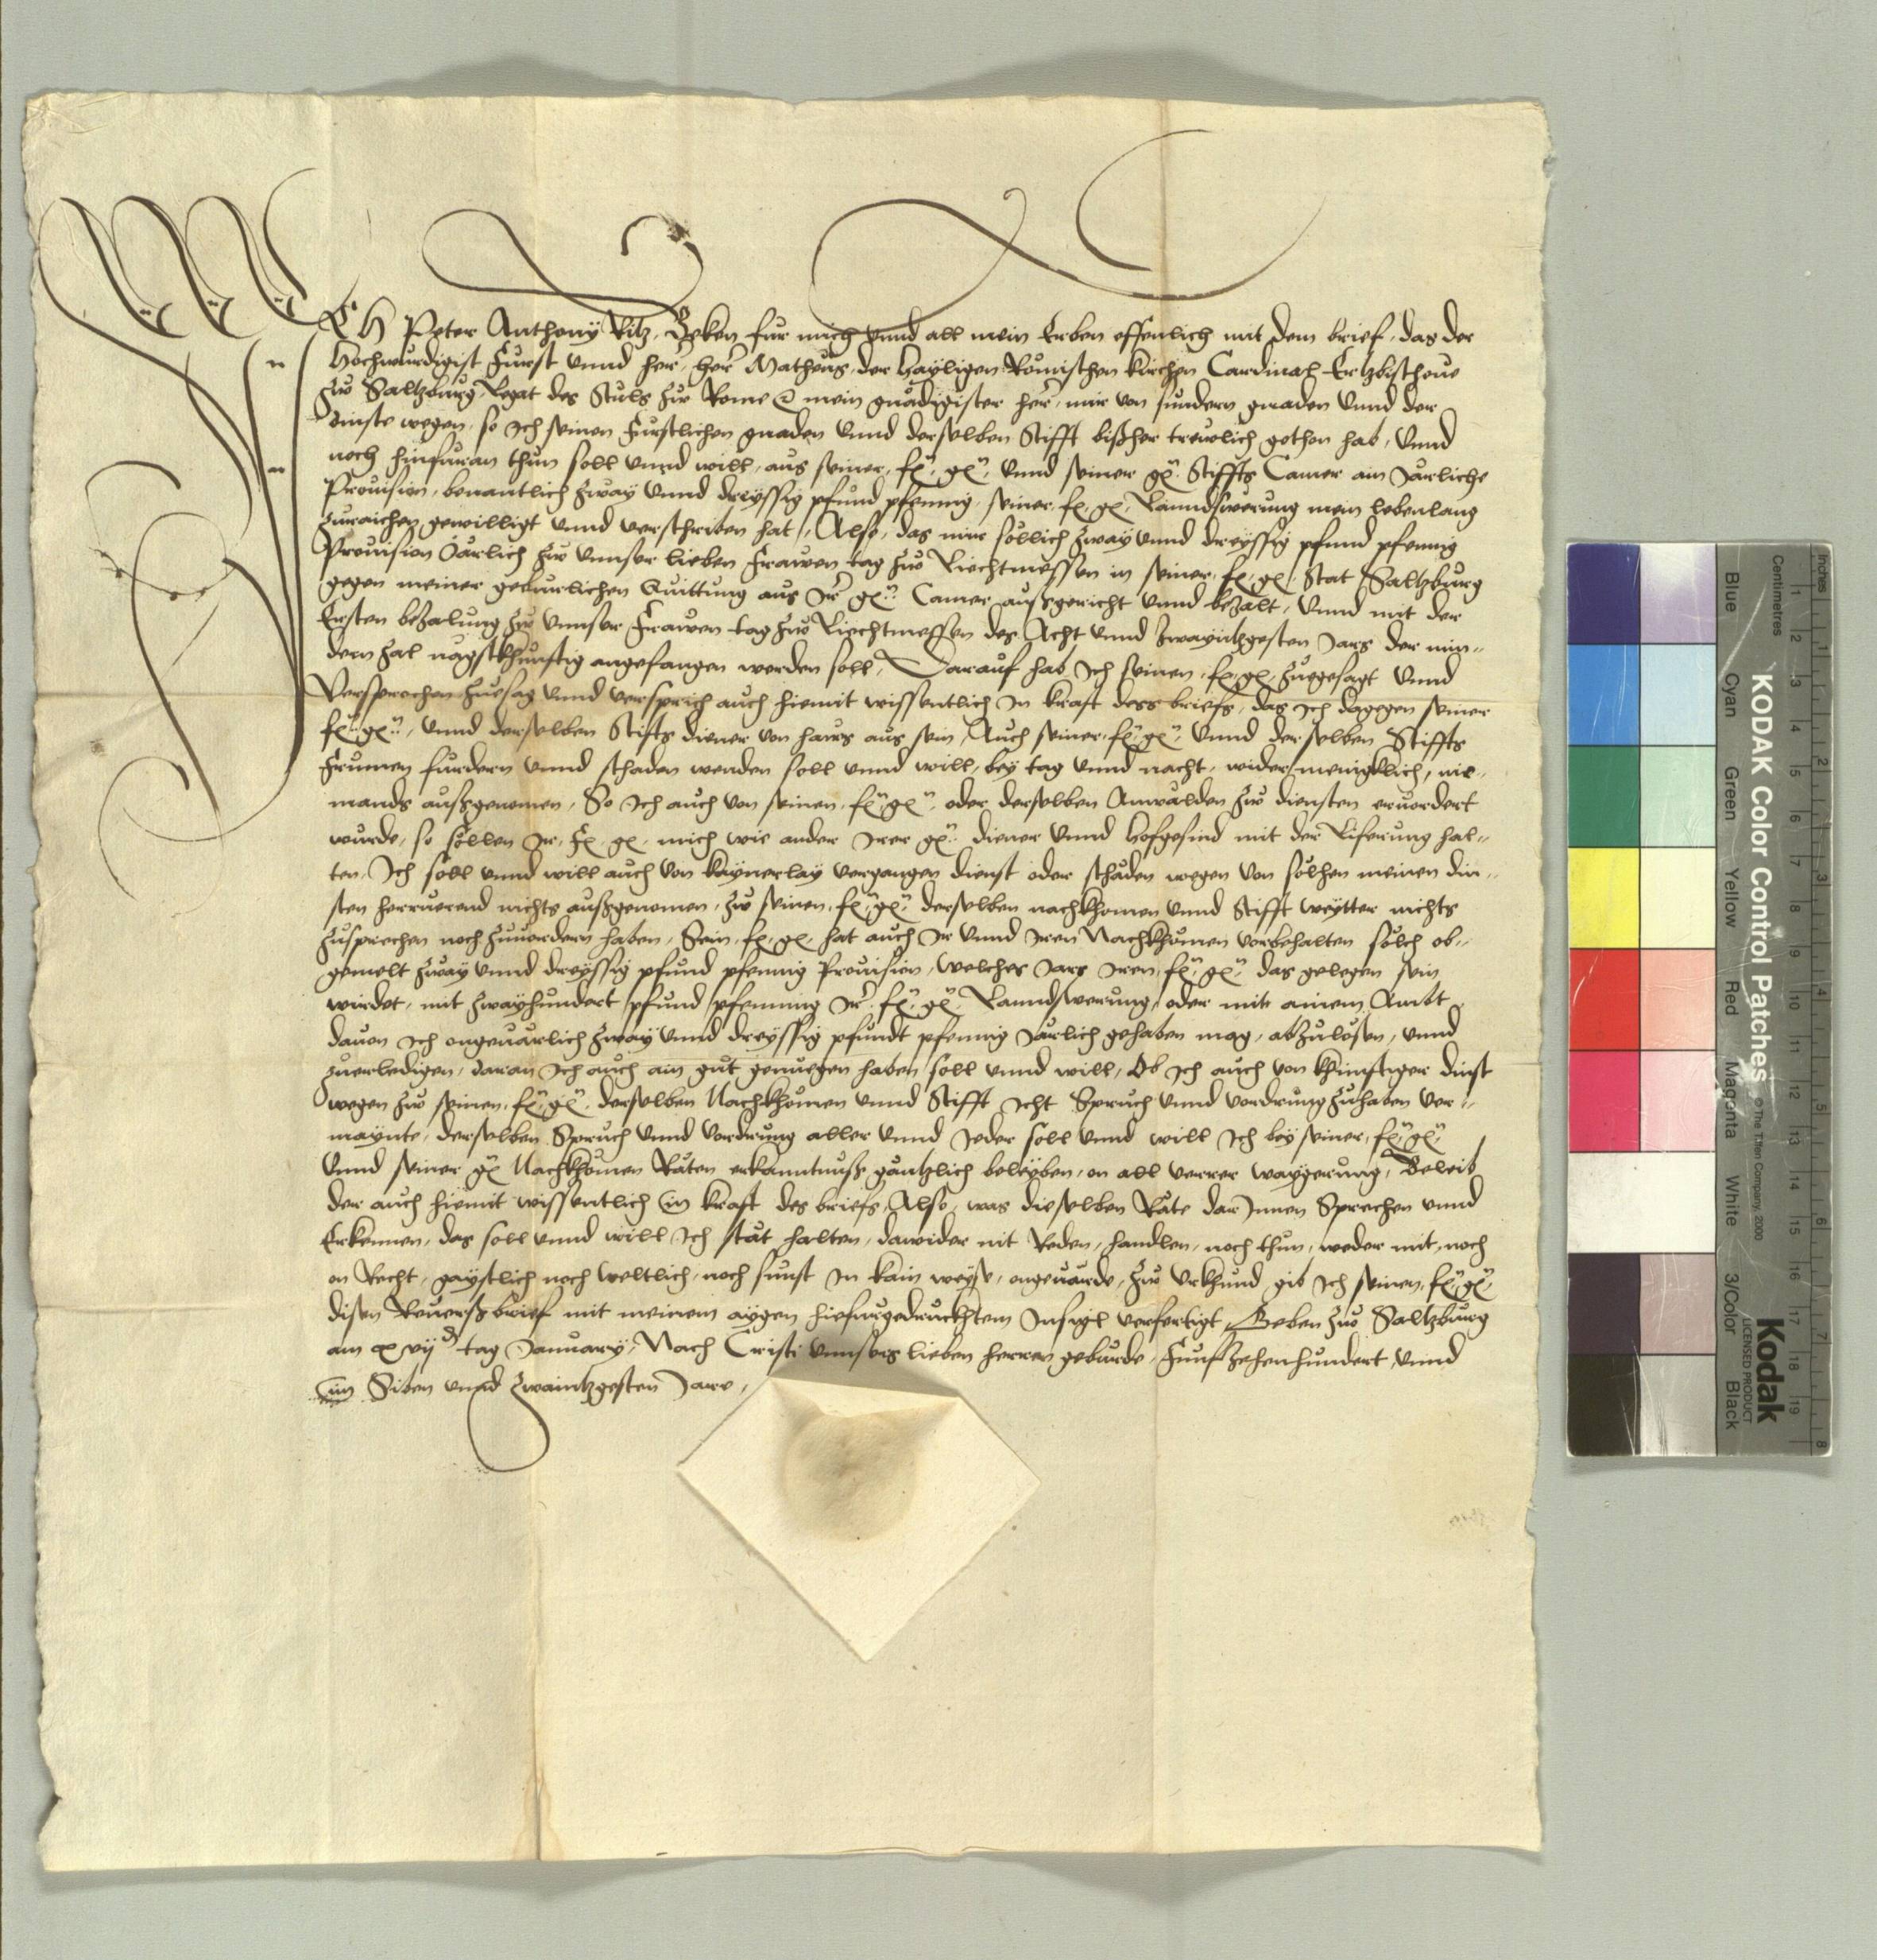 ICH Peter Anthonÿ Ritz, Beken fur mich vnnd all mein Erben offenlich mit dem brief, das der
Hochwurdigist Furst vnnd her, her Matheus, der Hayligen Römischen kirchen Cardinal Ertzbischoue
zw Saltzburg, Legat des Stuls zw Rome &c mein gnädigister her, mir von sundern gnaden vnnd der
dinste wegen, so Ich seinen Furstlichen gnaden vnnd derselben Stifft bißher treulich gethon hab, vnnd
noch hinfuran thun soll vnnd will, aus seiner, f. g. vnnd seiner g. Stiffts Camer ain Järliche
Prouision, benantlich zway vnnd dreyssig pfund pfennig, seiner, f. g. Lanndswerung mein lebenlang
zuraichen gewilligt vnnd verschriben hat, Also, das mir söllich zway vnnd dreyssig pfund pfennig
Prouision Järlich zw vnnser lieben Frawen tag zw Liechtmessen in seiner, f. g. Stat Saltzburg
gegen meiner geburlichen Quittung aus Ir g. Camer aussgericht vnnd bezalt, vnnd mit der
Ersten bezalung zw vnnser Frawen tag zw Liechtmessen des Acht vnnd zwayntzgesten Jars der min-
dern zal nägstkhunftig angefangen werden soll, Darauf hab Ich seinen, f. g. zuegesagt vnnd
Versprochen, zuesag vnnd versprich auch hiemit wissentlich In kraft dess briefs, das Ich dagegen seiner
f. g. vnnd derselben Stiffts diener von haws aus sein, Auch seiner, f. g. vnnd derselben Stiffts
Frumen furdern vnnd schaden wenden soll vnnd will, bey tag vnnd nacht, wider menigklich, nie-
mands außgenomen, So Ich auch von seinen, f. g. oder derselben Anwälden zw diensten eruordert
wurde, so söllen Ir, f. g. mich wie ander Irer g. diener vnnd Hofgesind mit der Liferung hal-
ten, Ich soll vnnd will auch von kaynerlay vergangen dienst oder schäden wegen von solhen meinen din-
sten herruerend nichts außgenomen, zw seinen, f. g. derselben nachkhomen vnnd Stifft weytter nichts
zusprechen noch zuuordern haben, Sein, f. g. hat auch Ir vnnd Iren Nachkhomen vorbehalten sölch ob-
gemelt zway vnnd dreyssig pfund pfennig Prouision, welches Jars Iren, f. g. das gelegen sein
wirdet, mit zwayhundert pfund pfenning Ir f. g. Lanndswerung, oder mit ainem Ambt
dauon Ich ongeuärlich zway vnnd dreyssig pfundt pfennig Järlich gehaben mag, abzulösen, vnnd
zuerledigen, daran Ich auch ain gut genuegen haben soll vnnd will, Ob Ich auch von khunftiger dinst
wegen zw seinen, f. g. derselben Nachkhomen vnnd Stifft Icht Spruch vnnd vordrung zuhaben ver-
maynte, derselben Spruch vnnd vordrung aller vnnd Jeder soll vnnd will Ich bey seiner, f. g.
vnnd seiner g. Nachkhomen Räten erkanntnuß gäntzlich beleyben, on all verrer waygerung, Beleib
der auch hiemit wissentlich in kraft des briefs, Also, was dieselben Räte dar Innen Sprechen vnnd
Erkennen, das soll vnnd will Ich stät halten, dawider nit Reden, handlen, noch thun, weder mit, noch
on Recht, gaystlich noch weltlich, noch sunst In kain weyse, ongeuärde, zw vrkhund gib Ich seinen, f. g.
disen Reuerßbrief mit meinem aygen hiefurgedruckhtem Insigl verfertigt, Geben zw Saltzburg
am xvij tag January, Nach Cristi vnnsers lieben herren geburde, Funfzehenhundert, vnnd
im Siben vnnd zwaintzgesten Jare,
KODAK Color Control Patches
© The Tiffen Company, 2000
Kodak
LICENSED PRODUCT
Blue Cyan Green Yellow Red Magenta White 3/Color Black
Inches 1 2 3 4 5 6 7 8
Centimetres 1 2 3 4 5 6 7 8 9 10 11 12 13 14 15 16 17 18 19